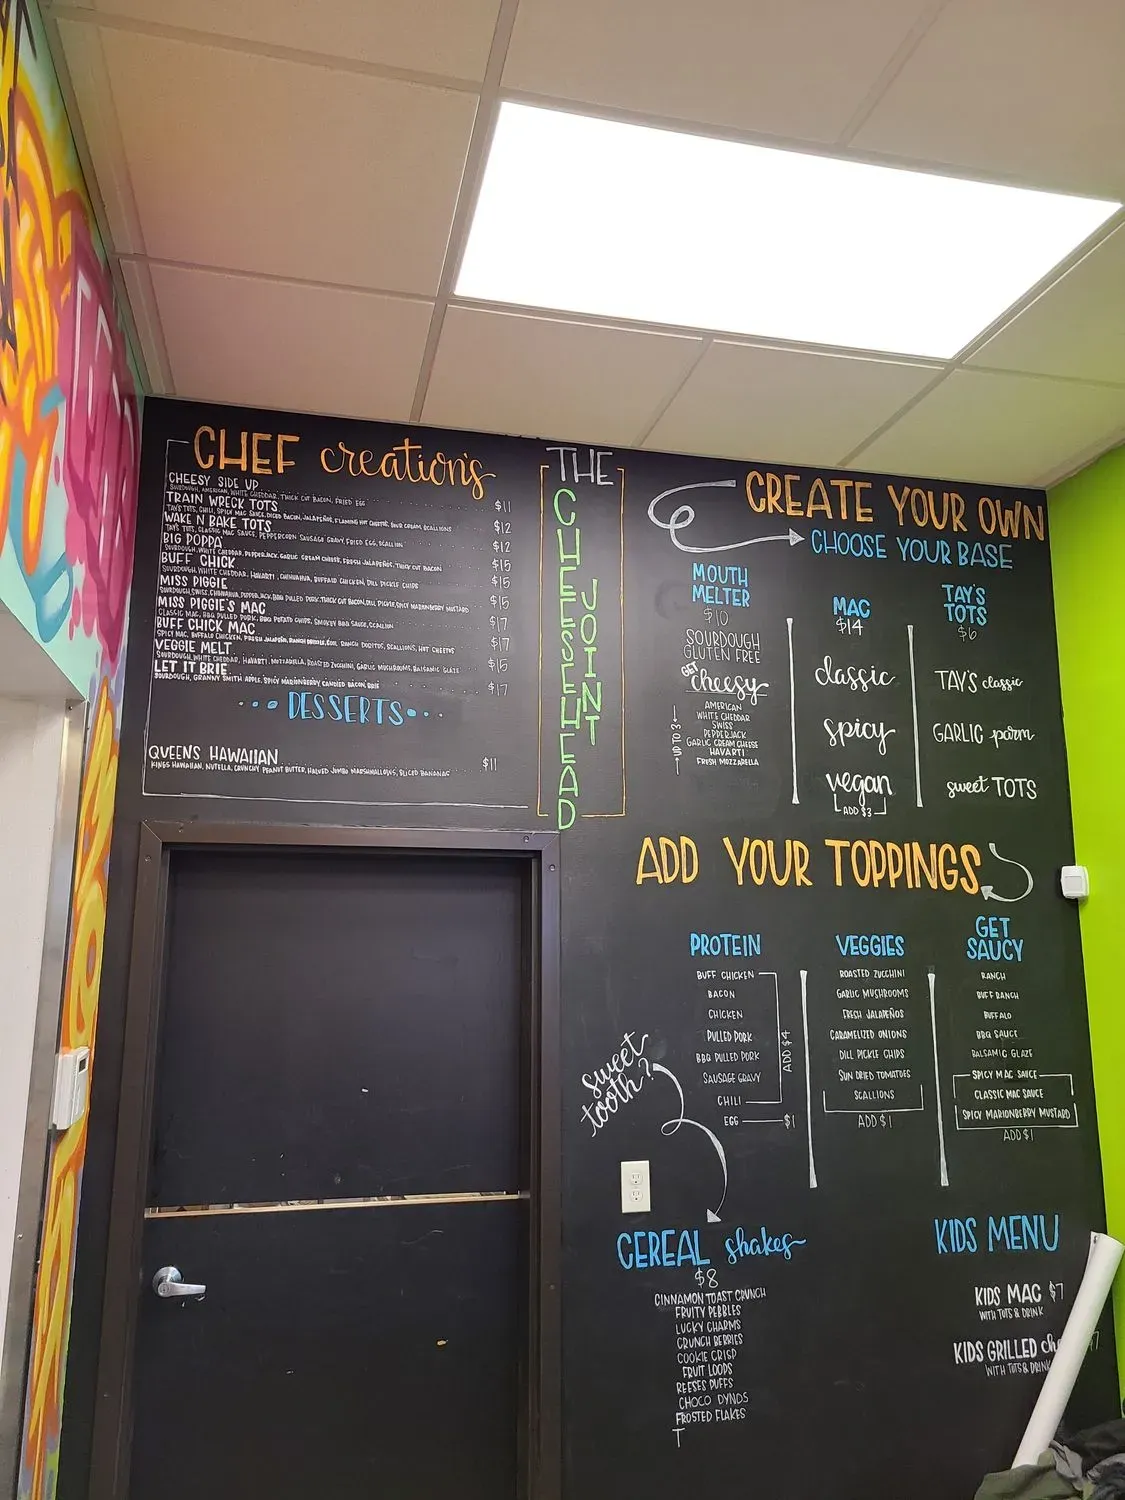 CHEF creations
CHEESY SIDE UP
SOURDOUGH, AMERICAN, WHITE CHEDDAR, THICK CUT BACON, FRIED EGG $11
TRAIN WRECK TOTS
TAY'S TOTS, CHILI, SPICY MAC SAUCE, DICED BACON, JALAPEÑOS, FLAMING HOT CHEETOS, SOUR CREAM, SCALLIONS $12
WAKE N BAKE TOTS
TAY'S TOTS, CLASSIC MAC SAUCE, PEPPERCORN SAUSAGE GRAVY, FRIED EGG, SCALLION $12
BIG POPPA
SOURDOUGH, WHITE CHEDDAR, PEPPERJACK, GARLIC CREAM CHEESE, FRESH JALAPEÑOS, THICK CUT BACON $15
BUFF CHICK
SOURDOUGH, WHITE CHEDDAR, HAVARTI, CHIHUAHUA, BUFFALO CHICKEN, DILL PICKLE CHIPS $15
MISS PIGGIE
SOURDOUGH, SWISS, CHIHUAHUA, PEPPERJACK, BBQ PULLED PORK, THICK CUT BACON, DILL PICKLE, SPICY MARIONBERRY MUSTARD $15
MISS PIGGIE'S MAC
CLASSIC MAC, BBQ PULLED PORK, BBQ POTATO CHIPS, SMOKEY BBQ SAUCE, SCALLION $17
BUFF CHICK MAC
SPICY MAC, BUFFALO CHICKEN, FRESH JALAPEÑO, RANCH DRIZZLE, COOL RANCH DORITOS, SCALLIONS, HOT CHEETOS $17
VEGGIE MELT
SOURDOUGH, WHITE CHEDDAR, HAVARTI, MOZZARELLA, ROASTED ZUCCHINI, GARLIC MUSHROOMS, BALSAMIC GLAZE $15
LET IT BRIE
SOURDOUGH, GRANNY SMITH APPLE, SPICY MARIONBERRY CANDIED BACON, BRIE $17
DESSERTS
QUEENS HAWAIIAN $11
KINGS HAWAIIAN, NUTELLA, CRUNCHY PEANUT BUTTER, HALVED JUMBO MARSHMALLOWS, SLICED BANANAS
THE
CHEESEHEAD
JOINT
CREATE YOUR OWN
CHOOSE YOUR BASE
MOUTH
MELTER
$10
SOURDOUGH
GLUTEN FREE
GET
cheesy
UP TO 3
AMERICAN
WHITE CHEDDAR
SWISS
PEPPERJACK
GARLIC CREAM CHEESE
HAVARTI
FRESH MOZZARELLA
MAC
$14
classic
spicy
vegan
ADD $3
TAY'S
TOTS
$6
TAY'S classic
GARLIC parm
sweet TOTS
ADD YOUR TOPPINGS
PROTEIN
BUFF CHICKEN
BACON
CHICKEN
PULLED PORK
BBQ PULLED PORK
SAUSAGE GRAVY
CHILI
ADD $4
EGG $1
VEGGIES
ROASTED ZUCCHINI
GARLIC MUSHROOMS
FRESH JALAPEÑOS
CARAMELIZED ONIONS
DILL PICKLE CHIPS
SUN DRIED TOMATOES
SCALLIONS
ADD $1
GET
SAUCY
RANCH
BUFF RANCH
BUFFALO
BBQ SAUCE
BALSAMIC GLAZE
SPICY MAC SAUCE
CLASSIC MAC SAUCE
SPICY MARIONBERRY MUSTARD
ADD $1
sweet
tooth?
CEREAL shakes
$8
CINNAMON TOAST CRUNCH
FRUITY PEBBLES
LUCKY CHARMS
CRUNCH BERRIES
COOKIE CRISP
FRUIT LOOPS
REESES PUFFS
CHOCO DYNOS
FROSTED FLAKES
T
KIDS MENU
KIDS MAC $7
WITH TOTS & DRINK
KIDS GRILLED che 7
WITH TOTS & DRINK